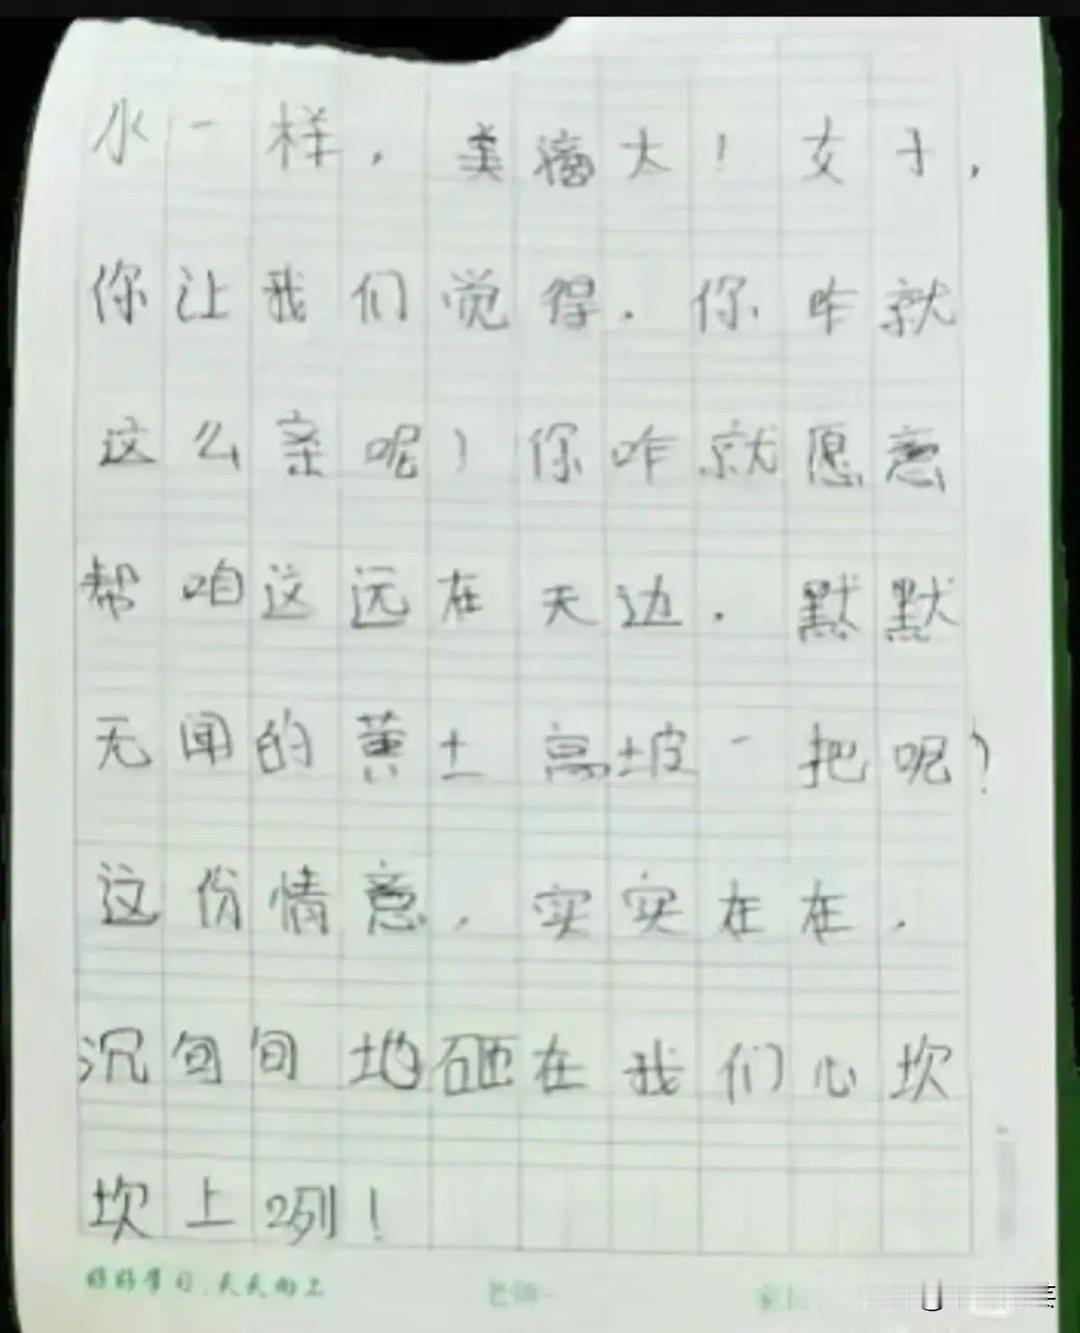 水一样，美滴太！女子，
你让我们觉得．你咋就
这么亲呢）你咋就愿意
帮咱这远在天边．默默
无闻的黄土高坡一把呢？
这份情意，实实在在．
沉甸甸地砸在我们心坎
坎上咧！
好好学习、天天向上